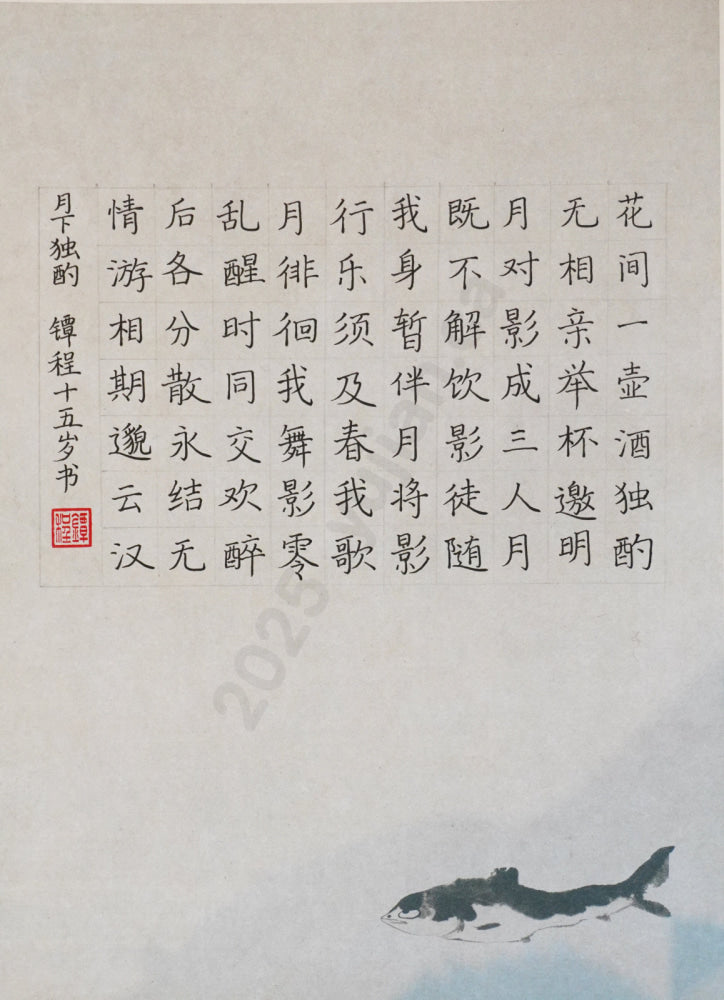 花间一壶酒独酌
无相亲举杯邀明
月对影成三人月
既不解饮影徒随
我身暂伴月将影
行乐须及春我歌
月徘徊我舞影零
乱醒时同交欢醉
后各分散永结无
情游相期邈云汉
月下独酌 镡程十五岁书
鐔程
2025